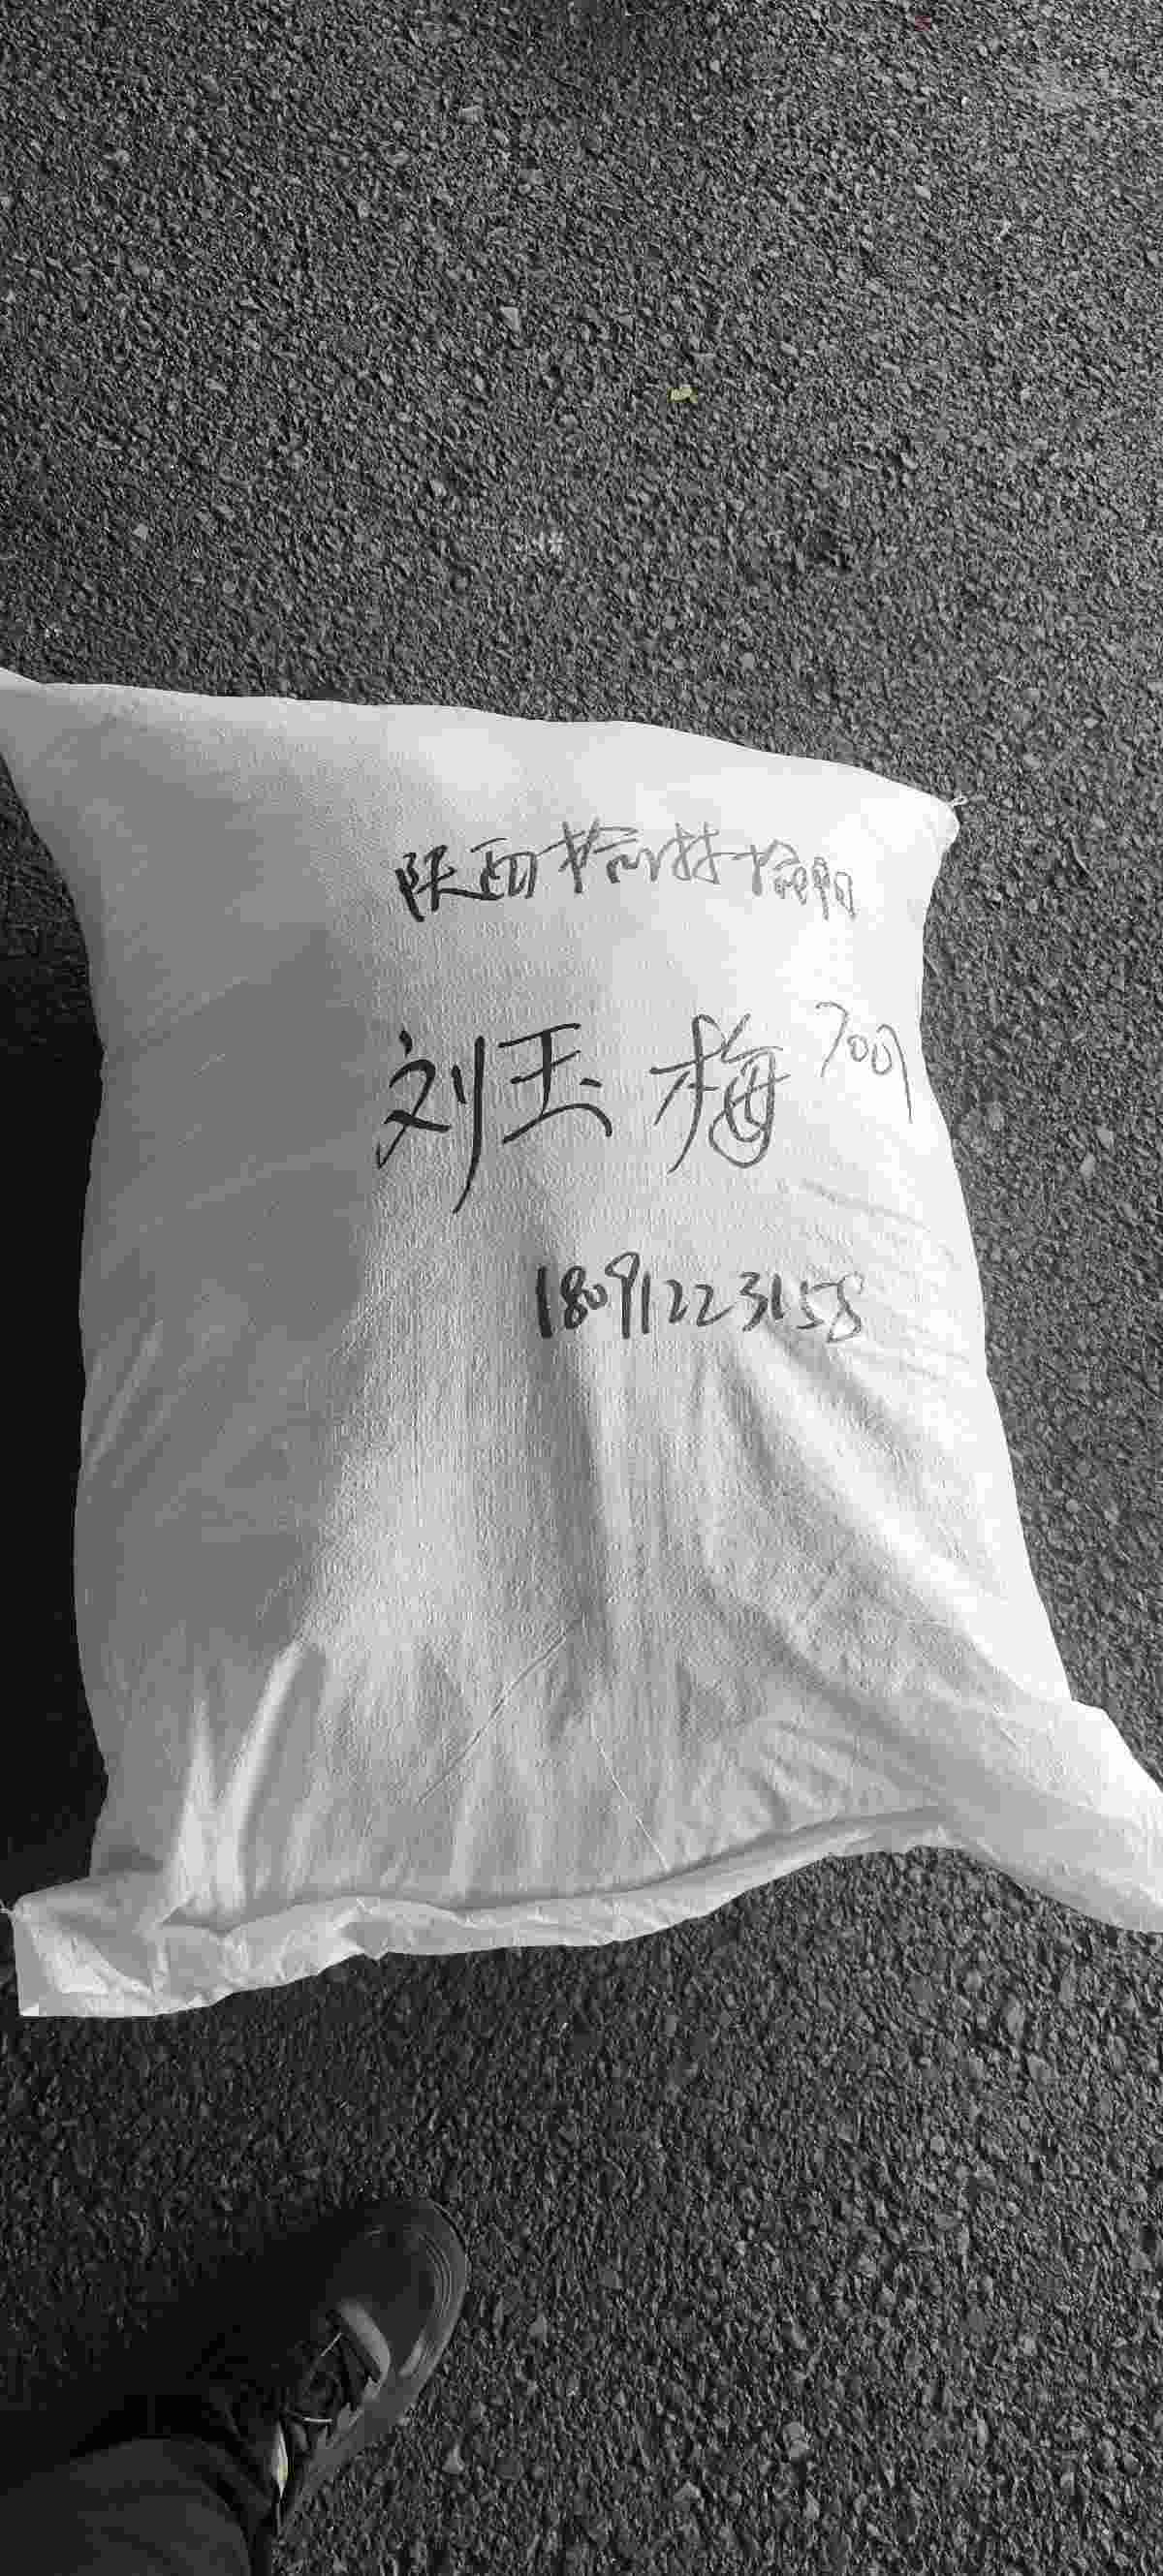 陕西榆林榆阳
刘玉梅 7001
18091223158